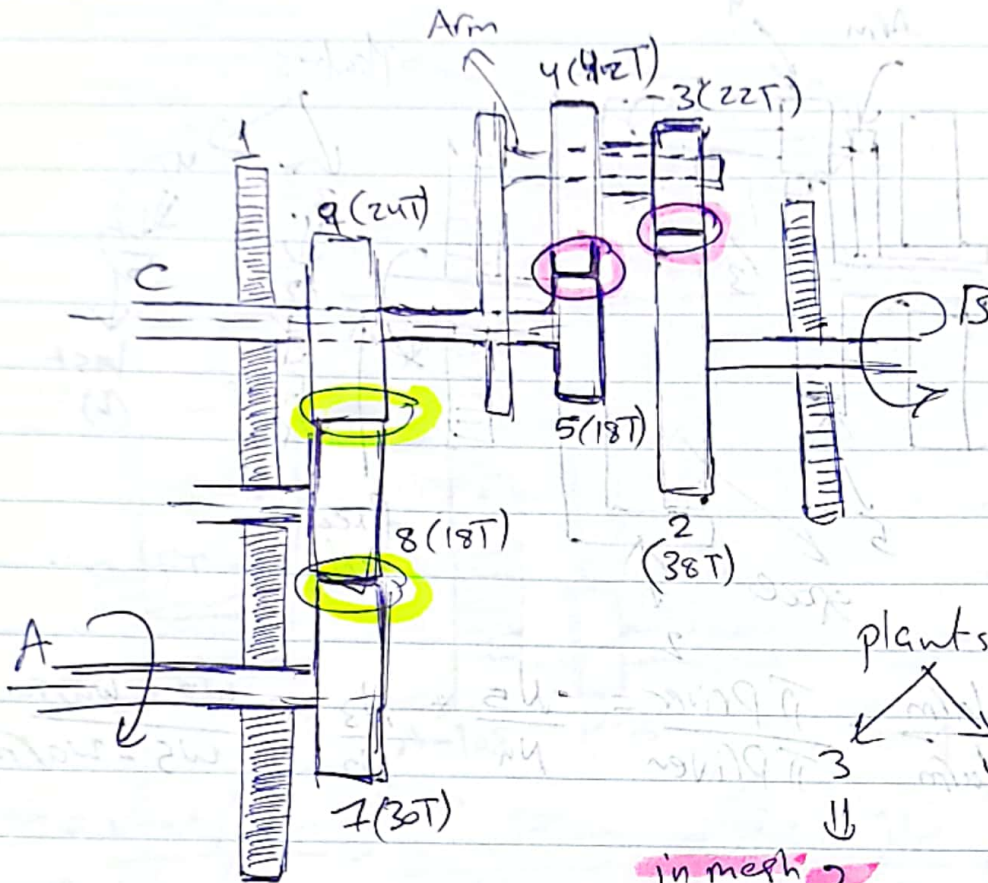 Arm
4(42T)
3(22T)
1
9(24T)
C
B
5(18T)
8(18T)
2
(38T)
A
plants
3
7(30T)
in mesh 2